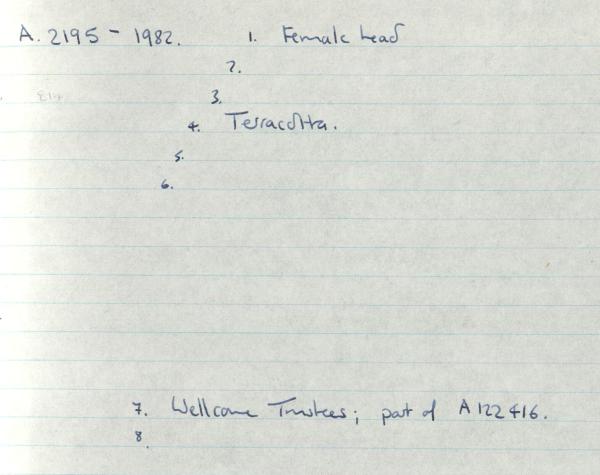 A. 2195 - 1982. 1. Female head
2.
3.
4. Terracotta.
5.
6.
7. Wellcome Trustees; part of A122416.
8.